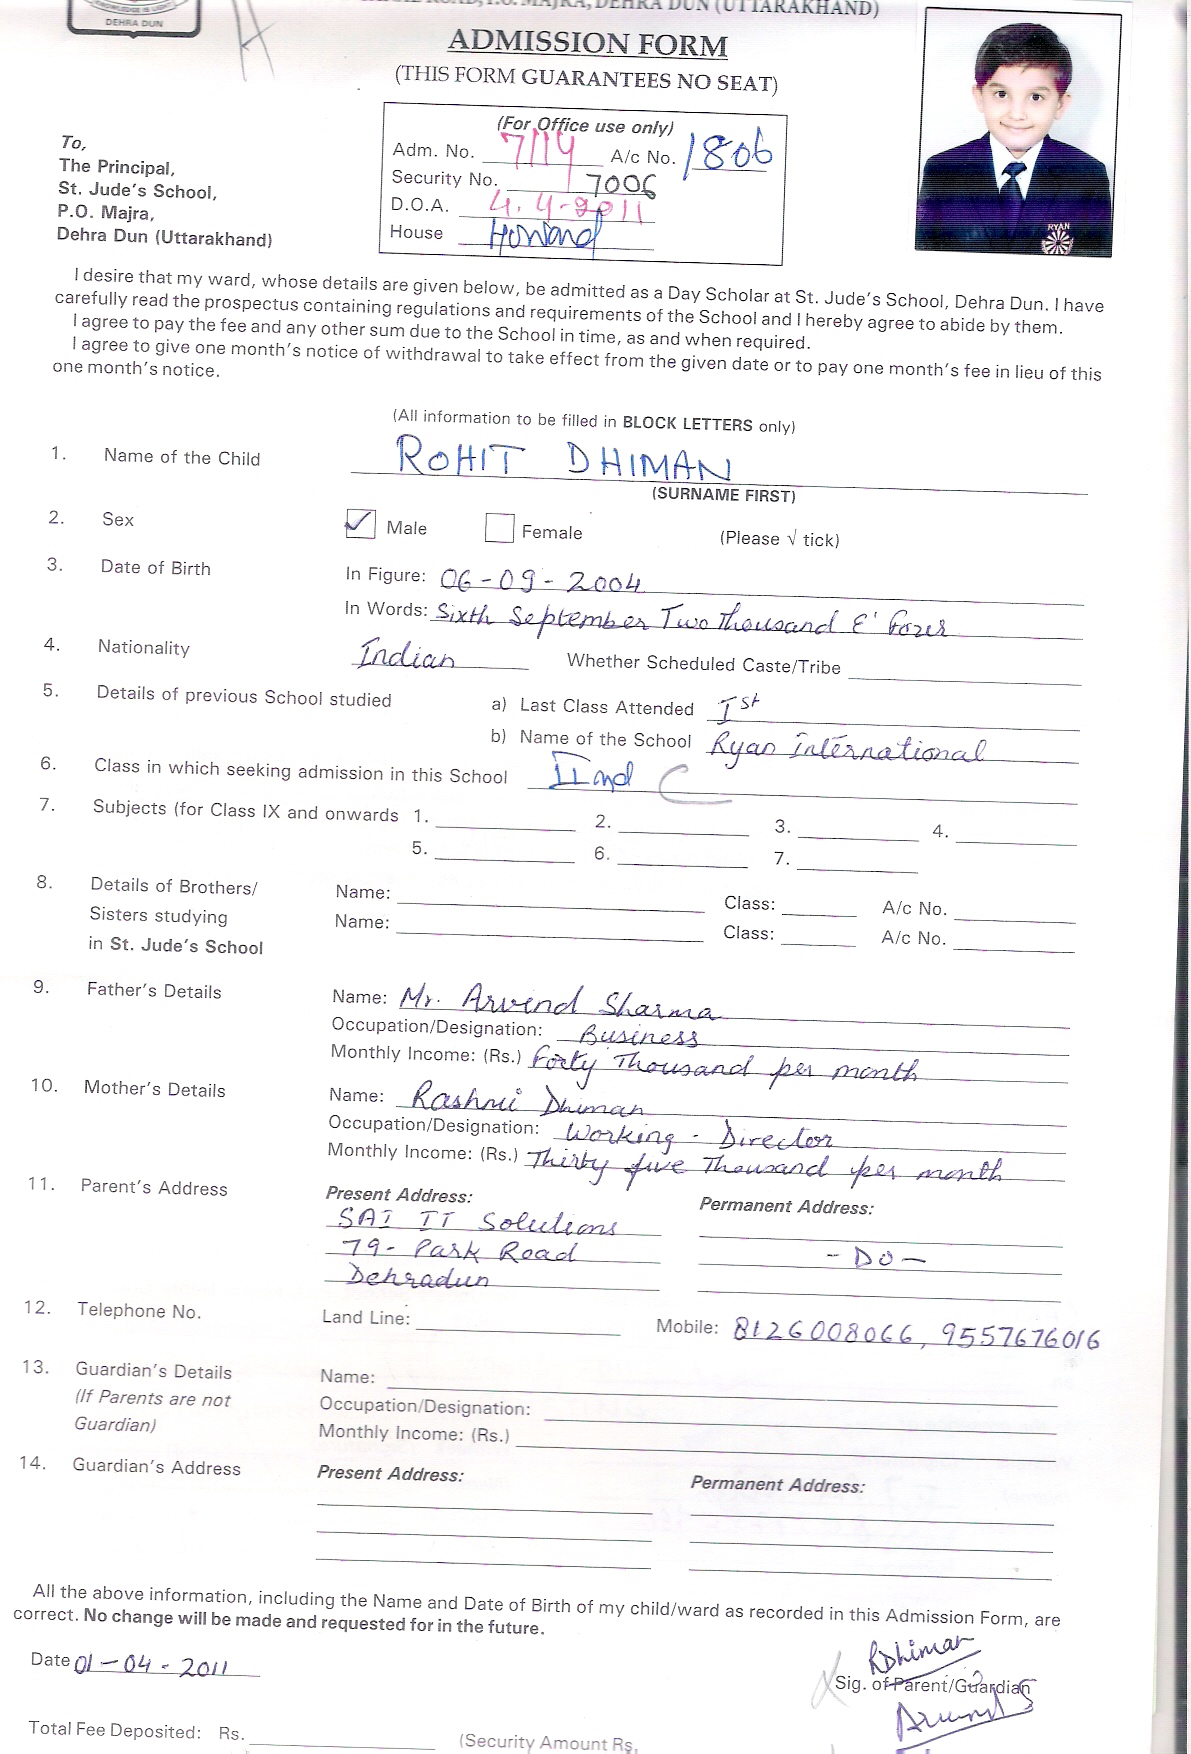 KNOWLEDGE IS LIGHT
DEHRA DUN
ROAD, P.O. MAJRA, DEHRA DUN (UTTARAKHAND)
ADMISSION FORM
(THIS FORM GUARANTEES NO SEAT)
(For Office use only)
Adm. No. 7114 A/c No. 1806
Security No. 7006
D.O.A. 4.4-2011
House Howard
RYAN
To,
The Principal,
St. Jude's School,
P.O. Majra,
Dehra Dun (Uttarakhand)
I desire that my ward, whose details are given below, be admitted as a Day Scholar at St. Jude's School, Dehra Dun. I have
carefully read the prospectus containing regulations and requirements of the School and I hereby agree to abide by them.
I agree to pay the fee and any other sum due to the School in time, as and when required.
I agree to give one month's notice of withdrawal to take effect from the given date or to pay one month's fee in lieu of this
one month's notice.
(All information to be filled in BLOCK LETTERS only)
1. Name of the Child ROHIT DHIMAN
(SURNAME FIRST)
2. Sex ✓ Male Female (Please √ tick)
3. Date of Birth In Figure: 06-09-2004
In Words: Sixth September Two Thousand & Four
4. Nationality Indian Whether Scheduled Caste/Tribe
5. Details of previous School studied a) Last Class Attended Ist
b) Name of the School Ryan International
6. Class in which seeking admission in this School IInd C
7. Subjects (for Class IX and onwards 1. 2. 3. 4.
5. 6. 7.
8. Details of Brothers/ Name: Class: A/c No.
Sisters studying Name: Class: A/c No.
in St. Jude's School
9. Father's Details Name: Mr. Arvind Sharma
Occupation/Designation: Business
Monthly Income: (Rs.) Forty Thousand per month
10. Mother's Details Name: Rashmi Dhiman
Occupation/Designation: Working - Director
Monthly Income: (Rs.) Thirty five Thousand per month
11. Parent's Address Present Address: Permanent Address:
SAI IT Solutions
79- Park Road - DO -
Dehradun
12. Telephone No. Land Line: Mobile: 8126008066, 9557676016
13. Guardian's Details Name:
(If Parents are not Occupation/Designation:
Guardian) Monthly Income: (Rs.)
14. Guardian's Address Present Address: Permanent Address:
All the above information, including the Name and Date of Birth of my child/ward as recorded in this Admission Form, are
correct. No change will be made and requested for in the future.
Date 01-04-2011 RDhiman
Sig. of Parent/Guardian
Arvind S
Total Fee Deposited: Rs. (Security Amount Rs.